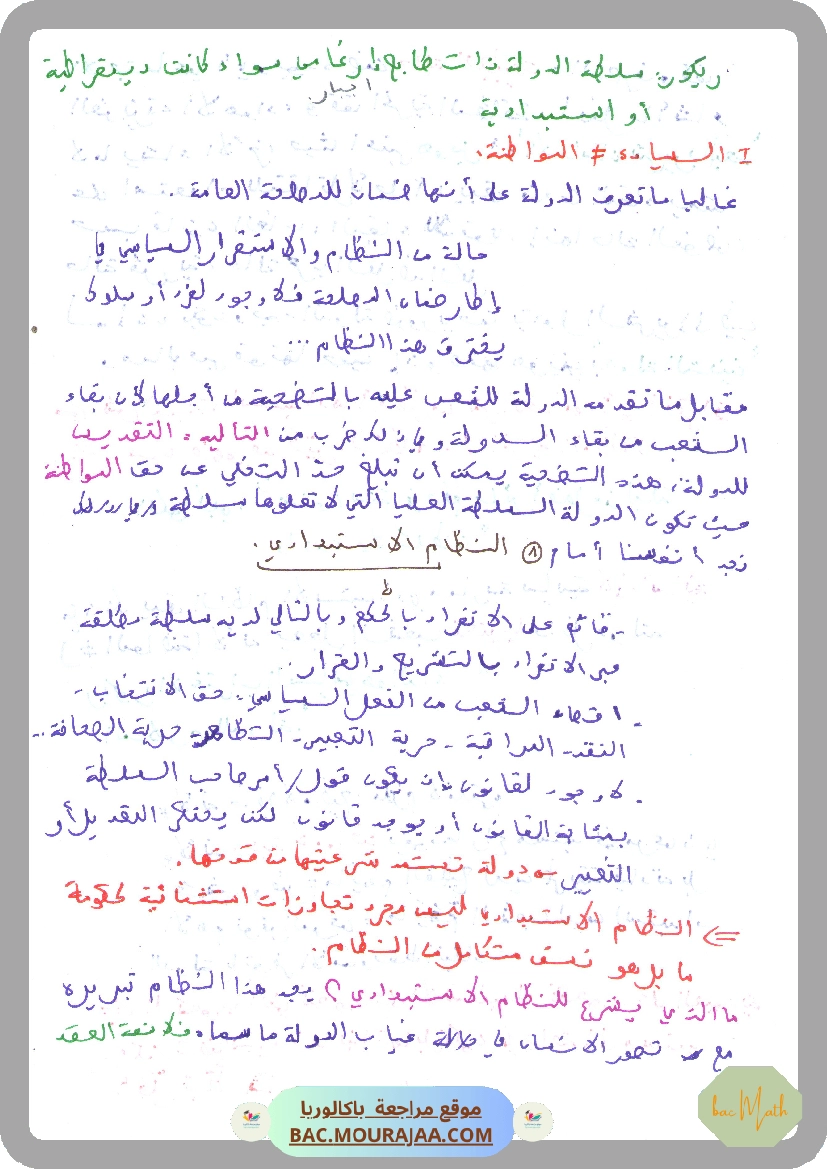 ويكون سلطة الدولة ذات طابع إرغامي سواء كانت ديمقراطية
اجبار
أو استبدادية
I السيادة ≠ المواطنة.
غالبا ما تعرف الدولة على أنها ضمان للمصلحة العامة.
حالة من النظام والاستقرار السياسي في
إطار ضمان المصلحة فلا وجود لفرد أو سلوك
يخترق هذا النظام ...
مقابل ما تقدمه الدولة للشعب عليه بالتضحية من أجلها لأن بقاء
الشعب من بقاء الدولة وفي ذلك ضرب من التأليه = التقديس
للدولة، هذه التضحية يمكن أن تبلغ حد التخلي عن حق المواطنة
حيث تكون الدولة السلطة العليا التي لا تعلوها سلطة
نجد أنفسنا أمام ① النظام الاستبدادي.
- قائم على الانفراد بالحكم وبالتالي لديه سلطة مطلقة
عبر الانفراد بالتشريع والقرار.
- اقصاء الشعب من الفعل السياسي - حق الانتخاب -
النقد - المراقبة - حرية التعبير - التظاهر - حرية الصحافة ..
- لا وجود لقانون بل يكون قول/أمر صاحب السلطة
بمثابة القانون أو يوجد قانون لكن يحتكر التعديل أو
التغيير دولة تستمد شرعيتها من قوتها.
=> النظام الاستبدادي ليس مجرد تجاوزات استثنائية لحكومة
ما بل هو نسق متكامل من النظام.
ما الذي يشرع للنظام الاستبدادي؟ يجد هذا النظام تبريره
مع تصور الإنسان في حالة غياب الدولة ما سماه فلاسفة العقد
موقع مراجعة باكالوريا
BAC.MOURAJAA.COM
bac Math